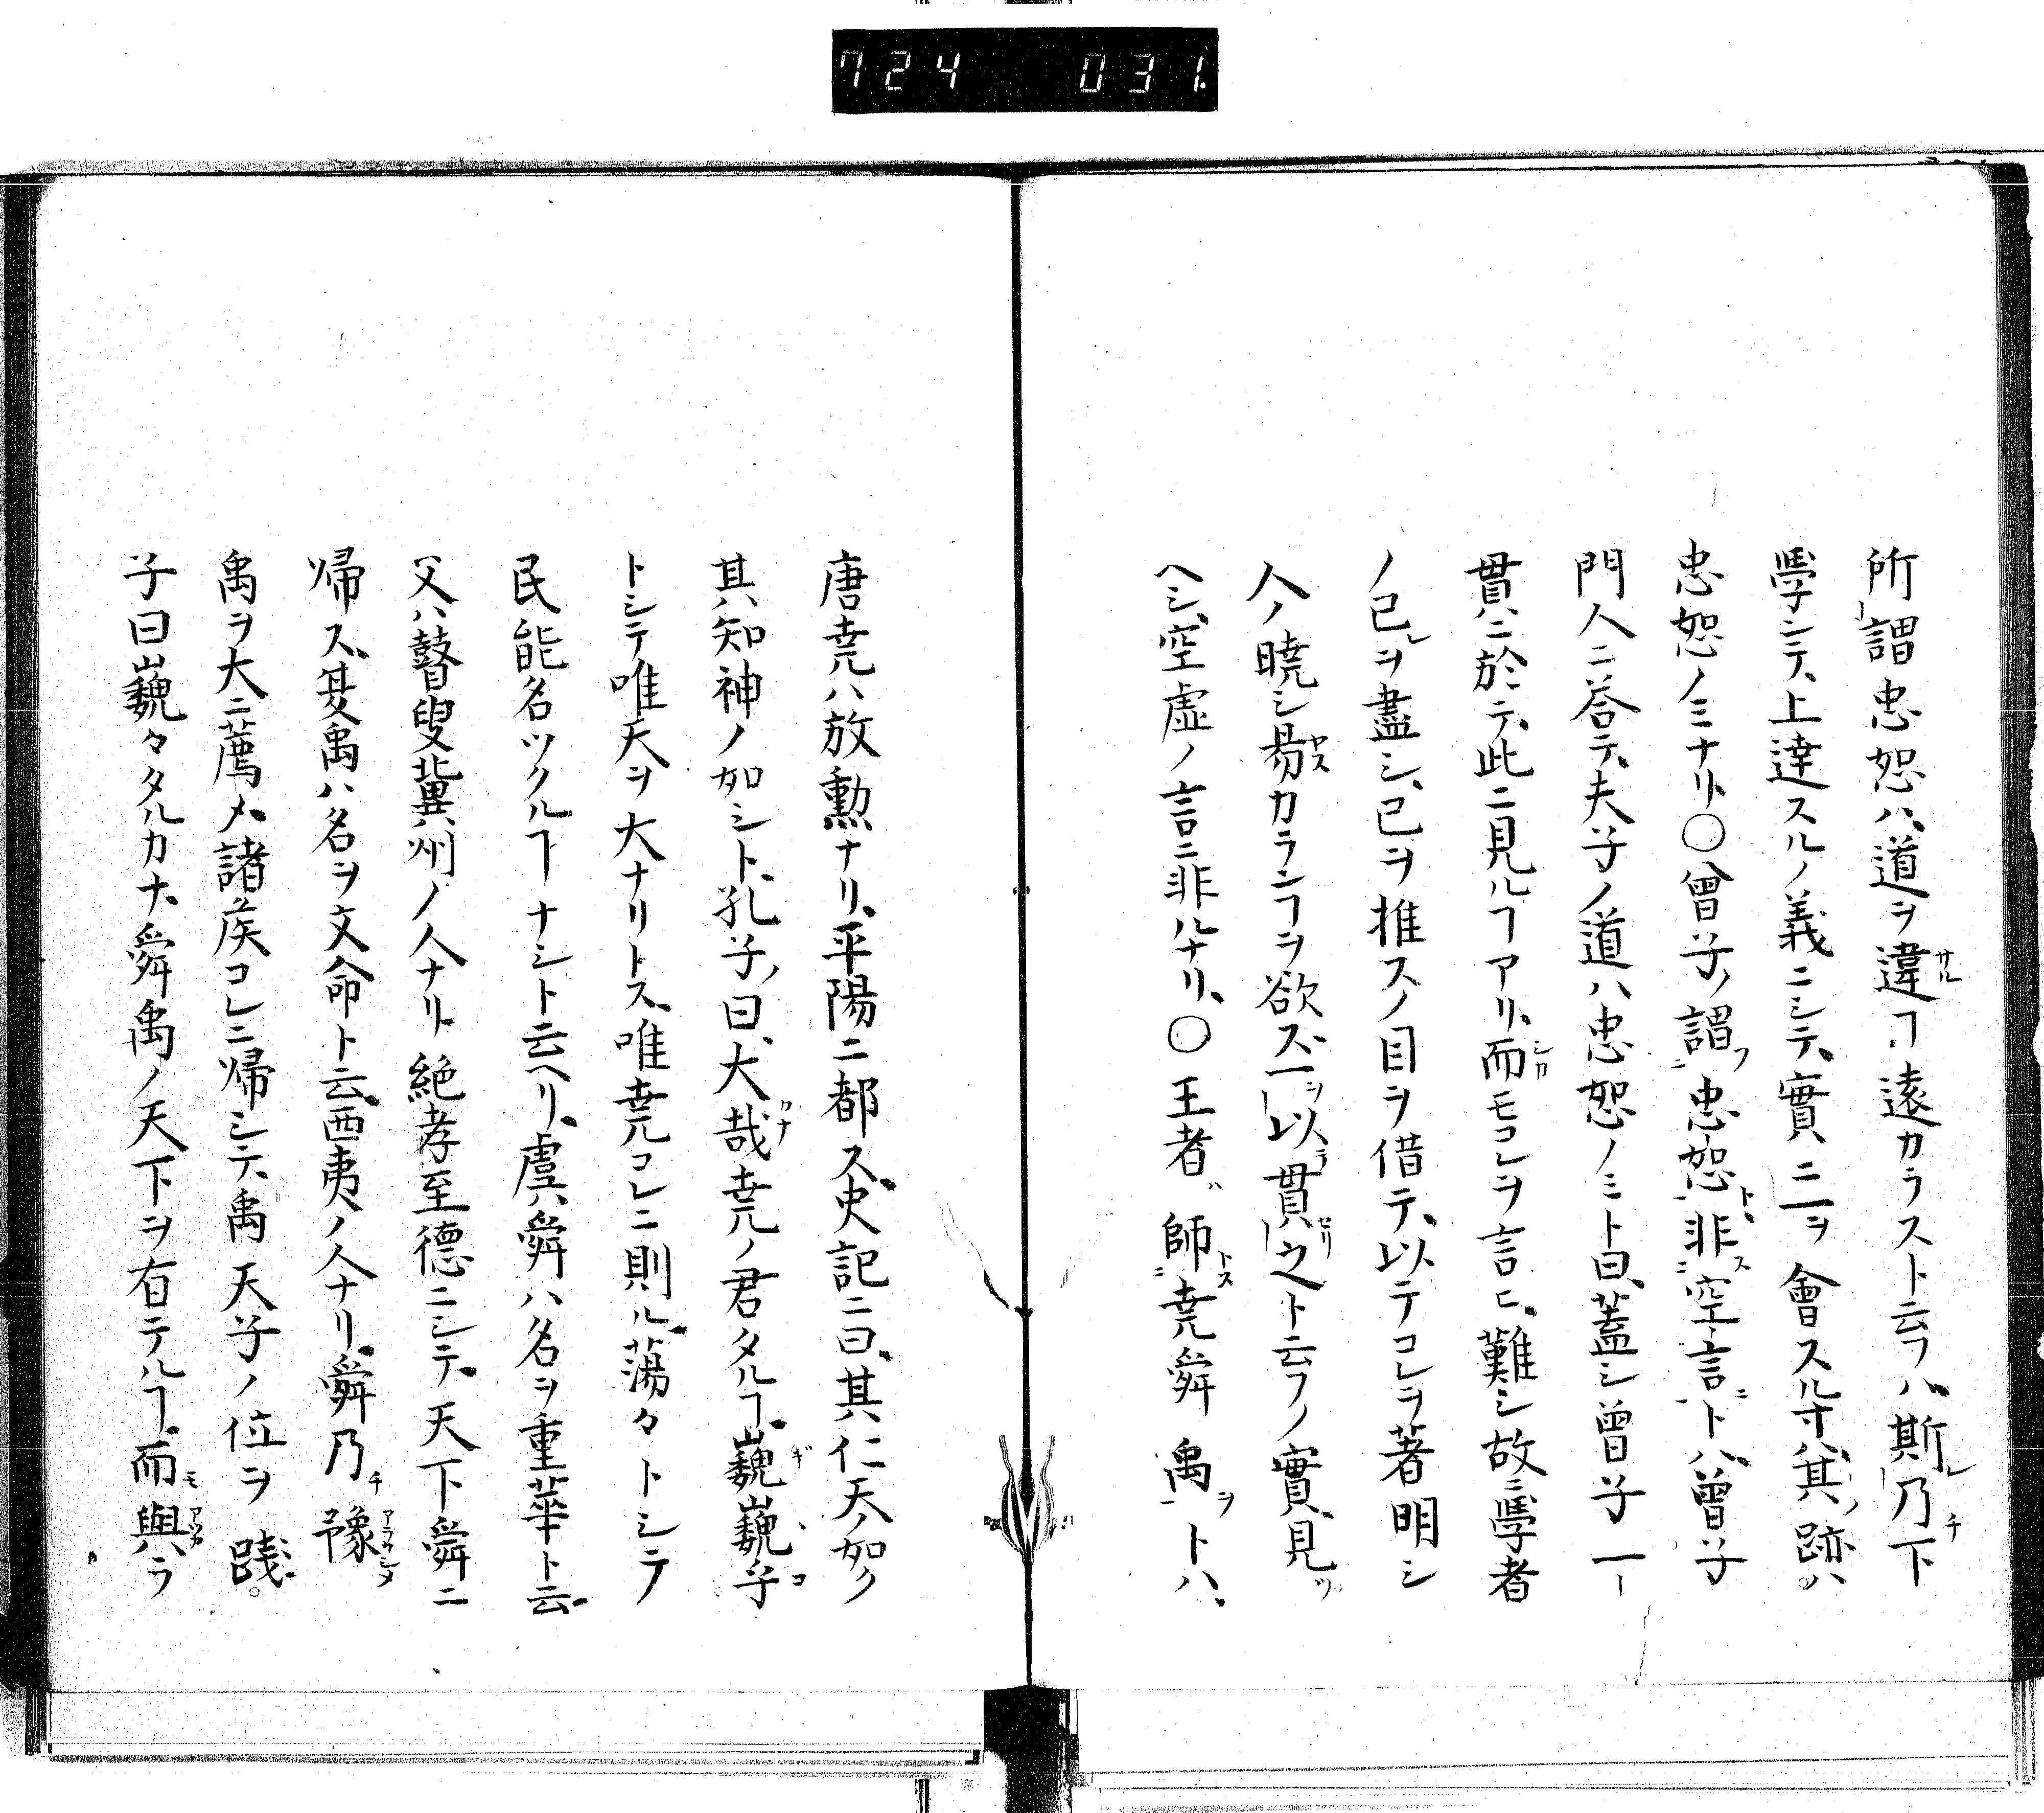 724 031.
所謂忠恕ハ、道ヲ違サルヿ遠カラスト云フハ、斯レ乃チ下
學シテ、上達スルノ義ニシテ、實ニ一ヲ會スル寸ハ、其ノ跡ハ
忠恕ノミナリ、〇曾子ノ謂フ忠恕ト、非ス空言ニトハ、曾子
門人ニ答テ、夫子ノ道ハ忠恕ノミト曰、蓋シ曾子一
貫ニ於テ、此ニ見ルヿアリ、而シカモコレヲ言ヒ難シ故ニ學者
ノ己レヲ盡シ、己ヲ推スノ目ヲ借テ、以テコレヲ著明シ
人ノ曉シ易ヤスカランヿヲ欲ス、一ヲ以ラ貫セリ之ト云フノ實、見ツ
ヘシ、空虚ノ言ニ非ルナリ、〇王者ハ師トス堯舜禹ヲトハ、
唐堯ハ放勲ナリ、平陽ニ都ス、史記ニ曰、其仁天ノ如ク
其ハ知神ノ如シト、孔子ノ曰、大哉カナ堯ノ君タルヿ、巍ギ巍、乎コ
トシテ唯天ヲ大ナリトス、唯堯コレニ則ル、蕩々トシテ
民能名ツクルヿナシト云ヘリ、虞舜ハ名ヲ重華ト云、
父ハ瞽叟冀州ノ人ナリ、絶孝至德ニシテ、天下舜ニ
帰ス、夏禹ハ名ヲ文命ト云、西夷ノ人ナリ、舜乃チ豫アラカシメ
禹ヲ大ニ薦メ、諸侯コレニ帰シテ、禹天子ノ位ヲ踐。
子曰巍々タルカナ、舜禹ノ天下ヲ有テルヿ、而モ與アツカラ